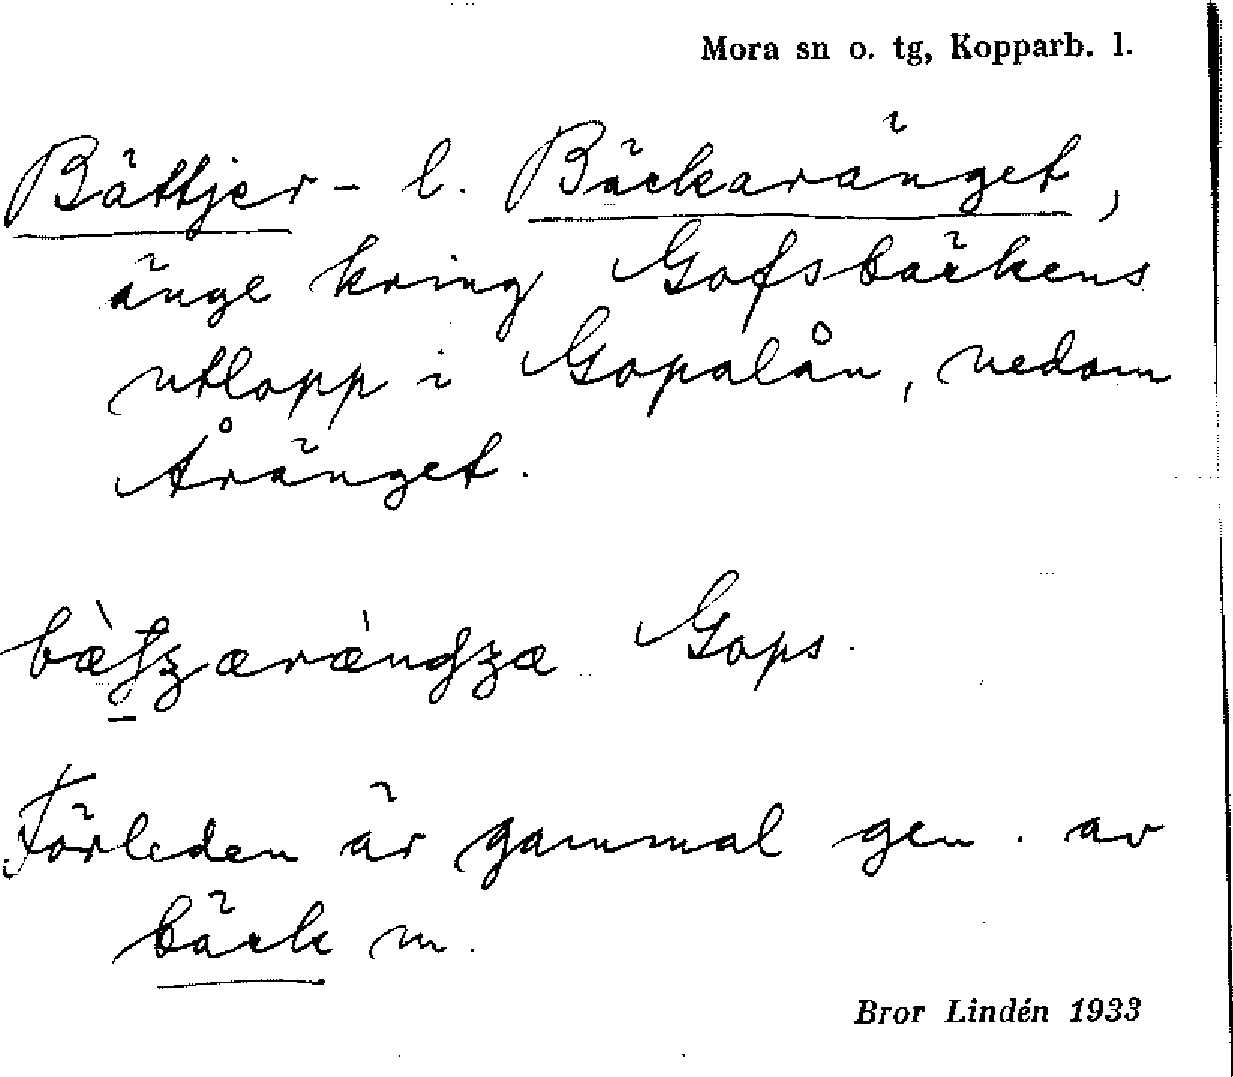 Mora sn o. tg, Kopparb. l.
Bättjer- l. Bäckaränget,
änge kring Gofsbäckens
utlopp i Gopalån, nedom
Åränget.
Gops.
Förleden är gammal gen. av
bäck m.
Bror Lindén 1933